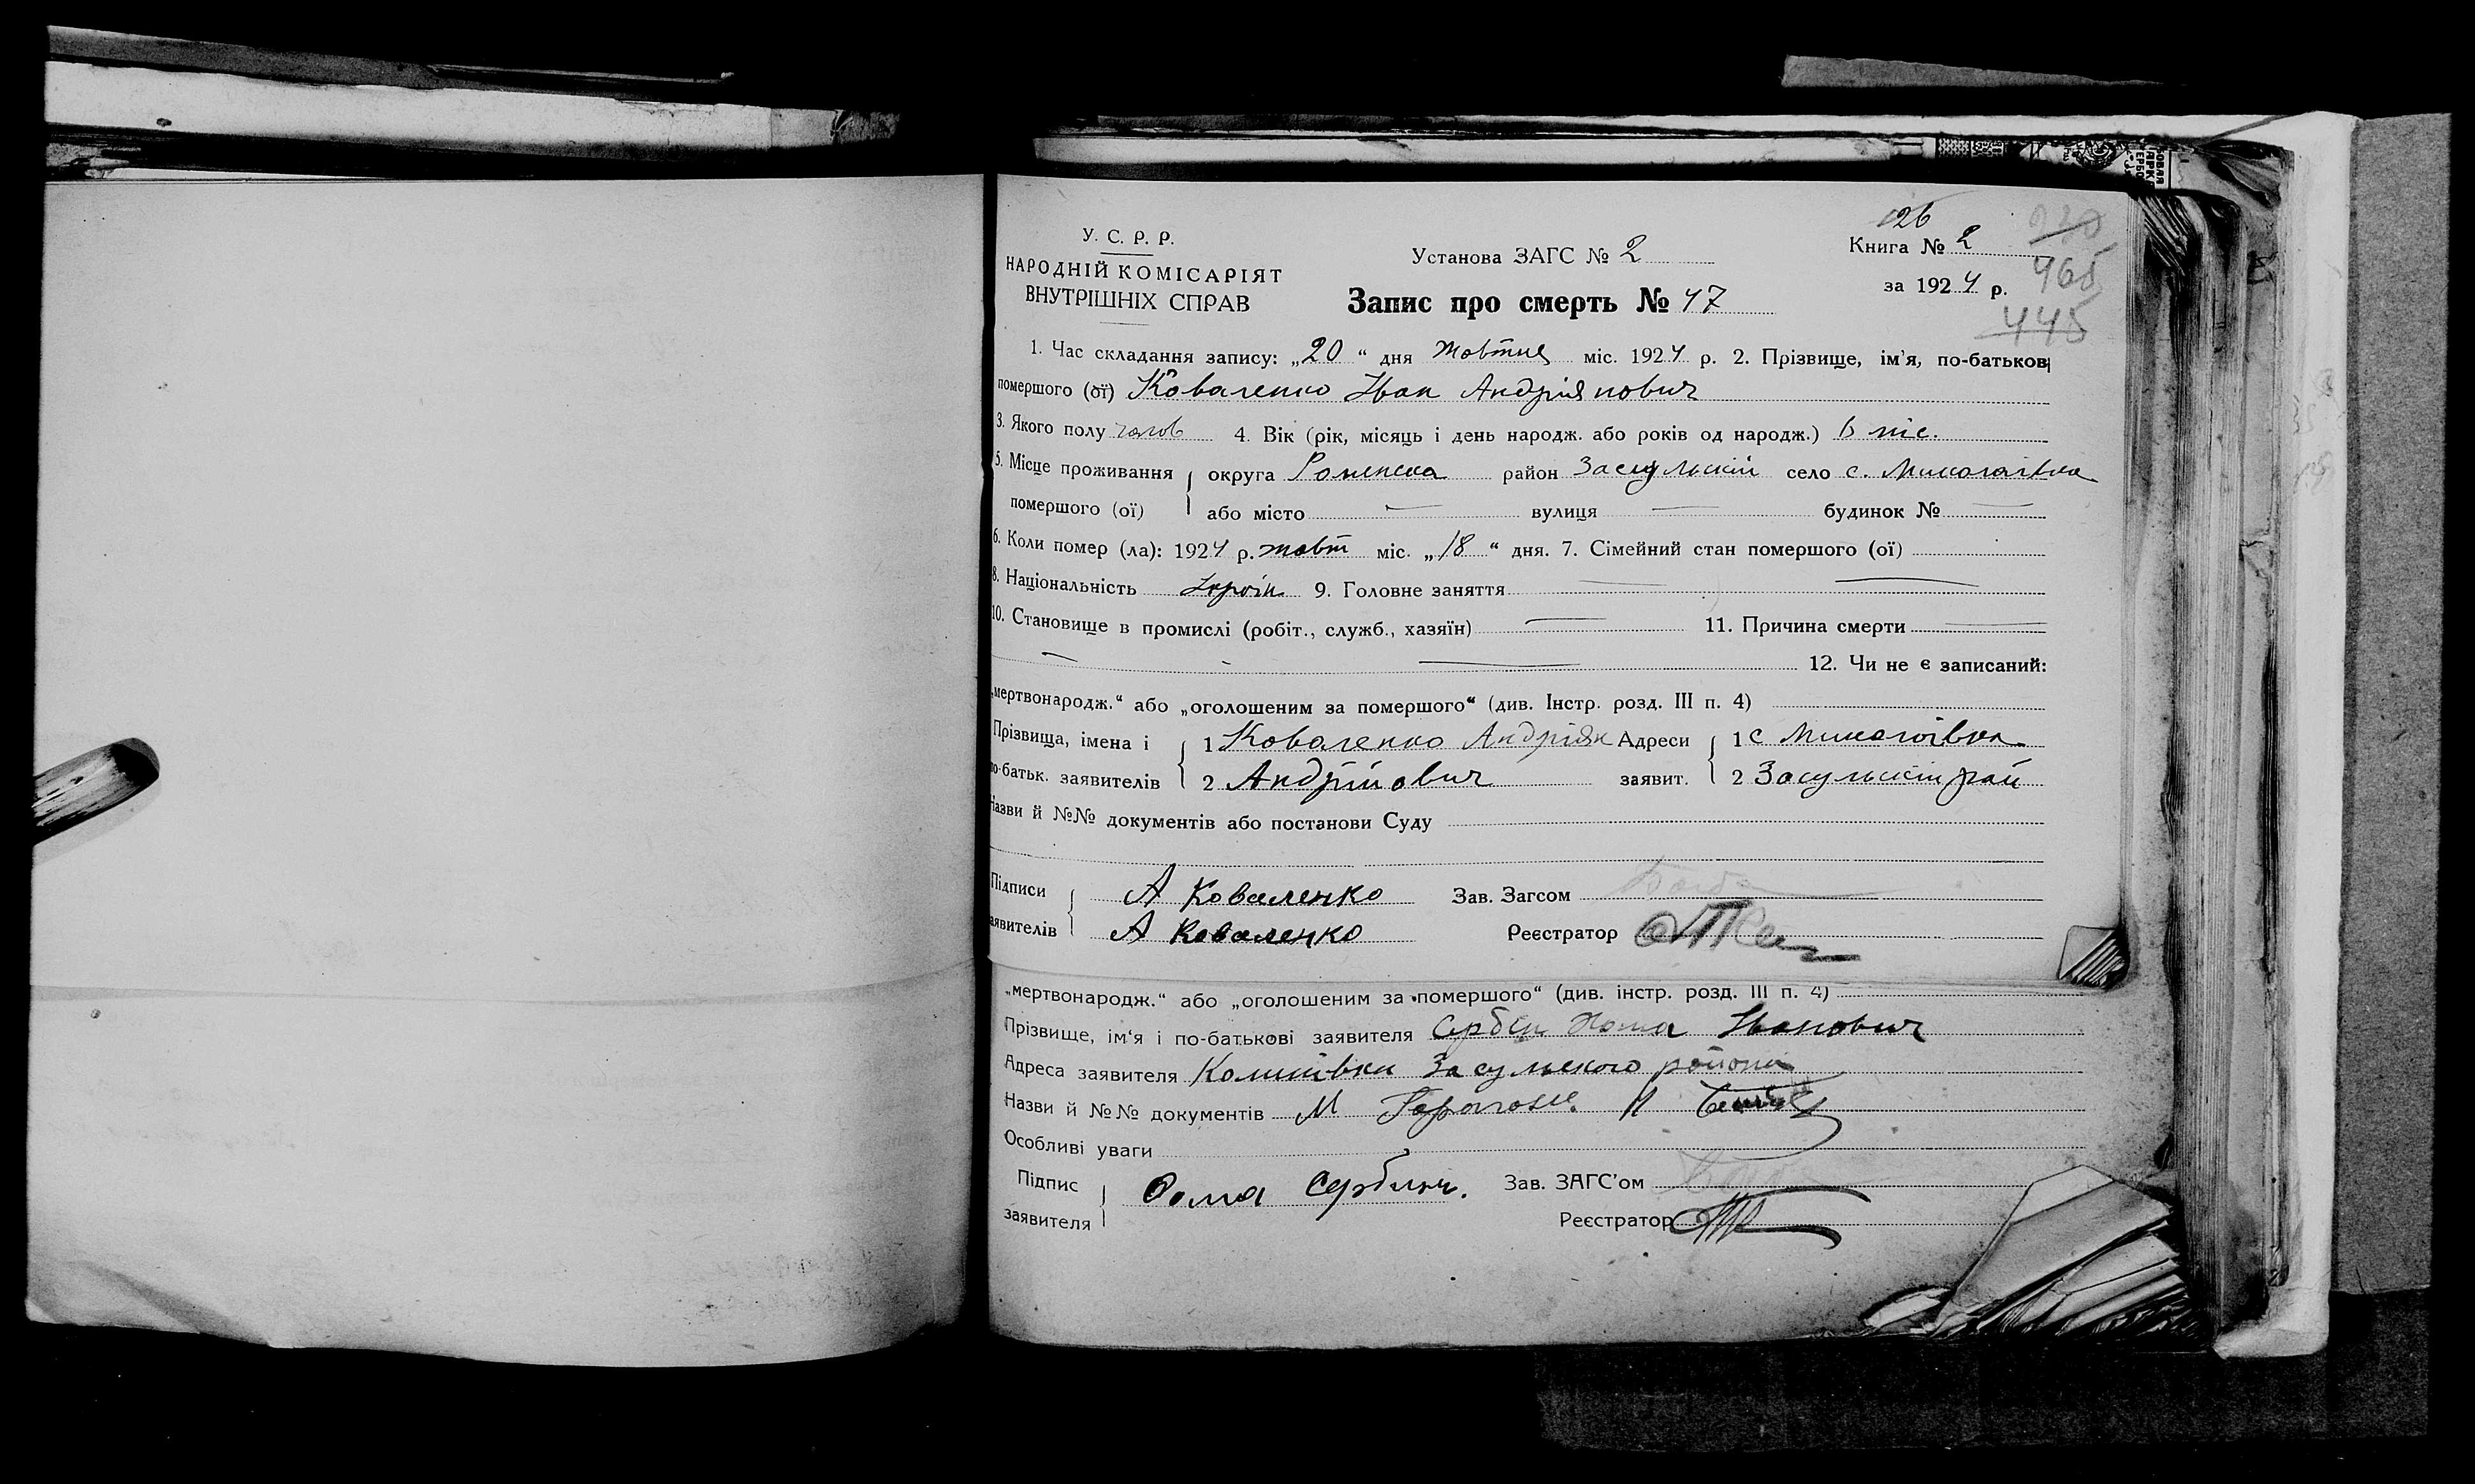 У. С. Р. Р.
НАРОДНІЙ КОМІСАРІЯТ
ВНУТРІШНІХ СПРАВ
Установа ЗАГС № 2
126
Книга № 2
за 1924 р.
230
465
445
Запис про смерть № 47
1. Час складання запису: „20“ дня жовтня міс. 1924 р. 2. Прізвище, ім'я, по-батькові
помершого (ої) Коваленко Іван Андріянович
3. Якого полу чолов 4. Вік (рік, місяць і день народж. або років од народж.) 6 міс.
5. Місце проживання помершого (ої) { округа Роменська район Засульскій село с. Миколаївка
або місто — вулиця — будинок № —
6. Коли помер (ла): 1924 р. жовт міс. „18“ дня. 7. Сімейний стан помершого (ої)
8. Національність Україн 9. Головне заняття — —
10. Становище в промислі (робіт., служб., хазяїн) — 11. Причина смерти —
— — 12. Чи не є записаний:
„мертвонародж.“ або „оголошеним за помершого“ (див. Інстр. розд. III п. 4)
Прізвища, імена і { 1 Коваленко Андріян Адреси { 1 с Миколаївка
по-батьк. заявителів 2 Андрійович заявит. 2 Засульскій рай
Назви й №№ документів або постанови Суду
Підписи { А Коваленко Зав. Загсом
заявителів А Коваленко Реєстратор
„мертвонародж.“ або „оголошеним за помершого“ (див. інстр. розд. III п. 4)
Прізвище, ім'я і по-батькові заявителя Сербин Хома Іванович
Адреса заявителя Засульского района
Назви й №№ документів М
Особливі уваги
Підпис { Фома Сербин. Зав. ЗАГС'ом
заявителя Реєстратор